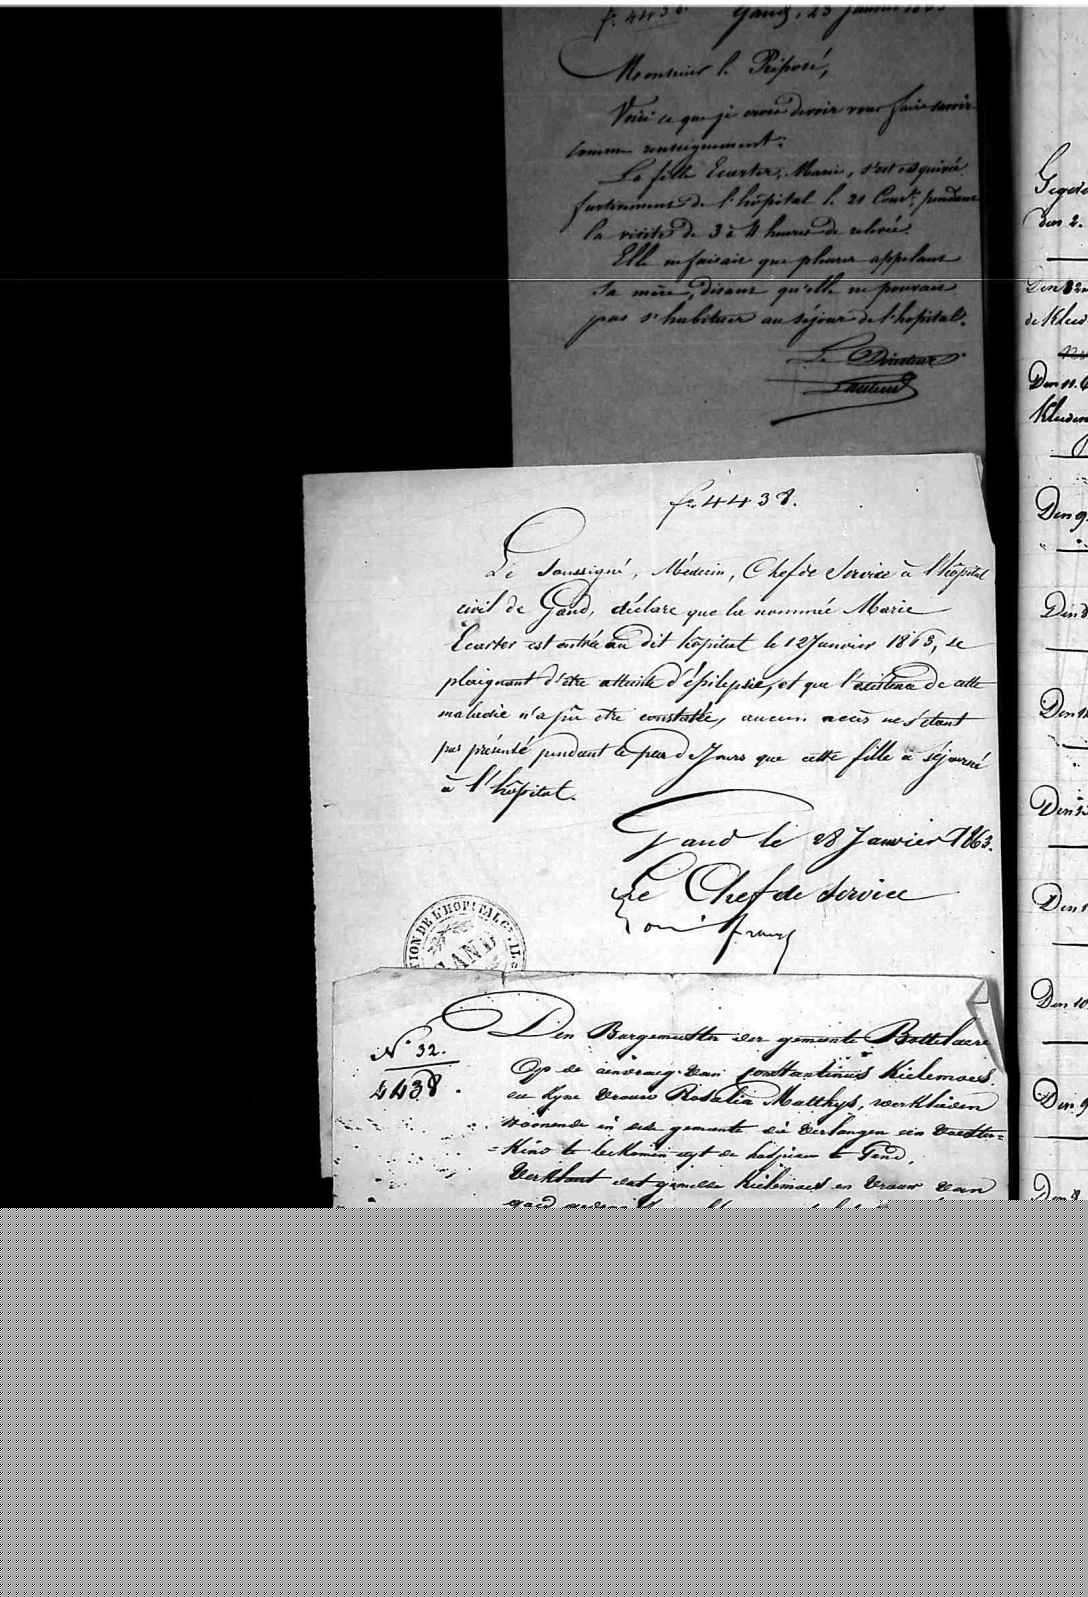 fo 4438. Gand, 23 Janvier 1863
Monsieur le Préposé,
Voici ce que je crois devoir vous faire savoir
comme renseignement:
La fille Ecarter, Marie, s'est esquivée
furtivement de l'hôpital le 21 Court pendant
la visite de 3 à 4 heures de relevée.
Elle ne faisait que pleurer appelant
sa mère, disant qu'elle ne pouvait
pas s'habituer au séjour de l'hopital.
Le Directeur
fo 4438.
Le Soussigné, Médecin, Chef de Service à l'hôpital
civil de Gand, déclare que la nommée Marie
Ecarter est entrée au dit hôpital le 12 Janvier 1863, se
plaignant d'être atteinte d'épilepsie, et que l'existence de cette
maladie n'a pu être constatée, aucun accès ne s'étant
pas présenté pendant le peu de Jours que cette fille a séjourné
à l'hôpital.
Gand le 28 Janvier 1863.
Le Chef de Service
TION DE L'HOPITAL C IL
GAND
No 32.
4438.
Den Burgemeester der gemeente Bottelaere
Op de aenvraeg van Constantinus Kielemoes
en zyne vrouw Rosalia Matthys, werklieden
woonende in de gemeente die verlangen een voester=
=kind te bekomen uyt de hospicien te Gend.
Verklaert dat gemelde Kielemoes en vrouw van
goed gedrag
den 2.
de Kleed
Den 11.
Kleeder
Den 9
Den 8
Den 1
Den 10
Den 9
Den 8